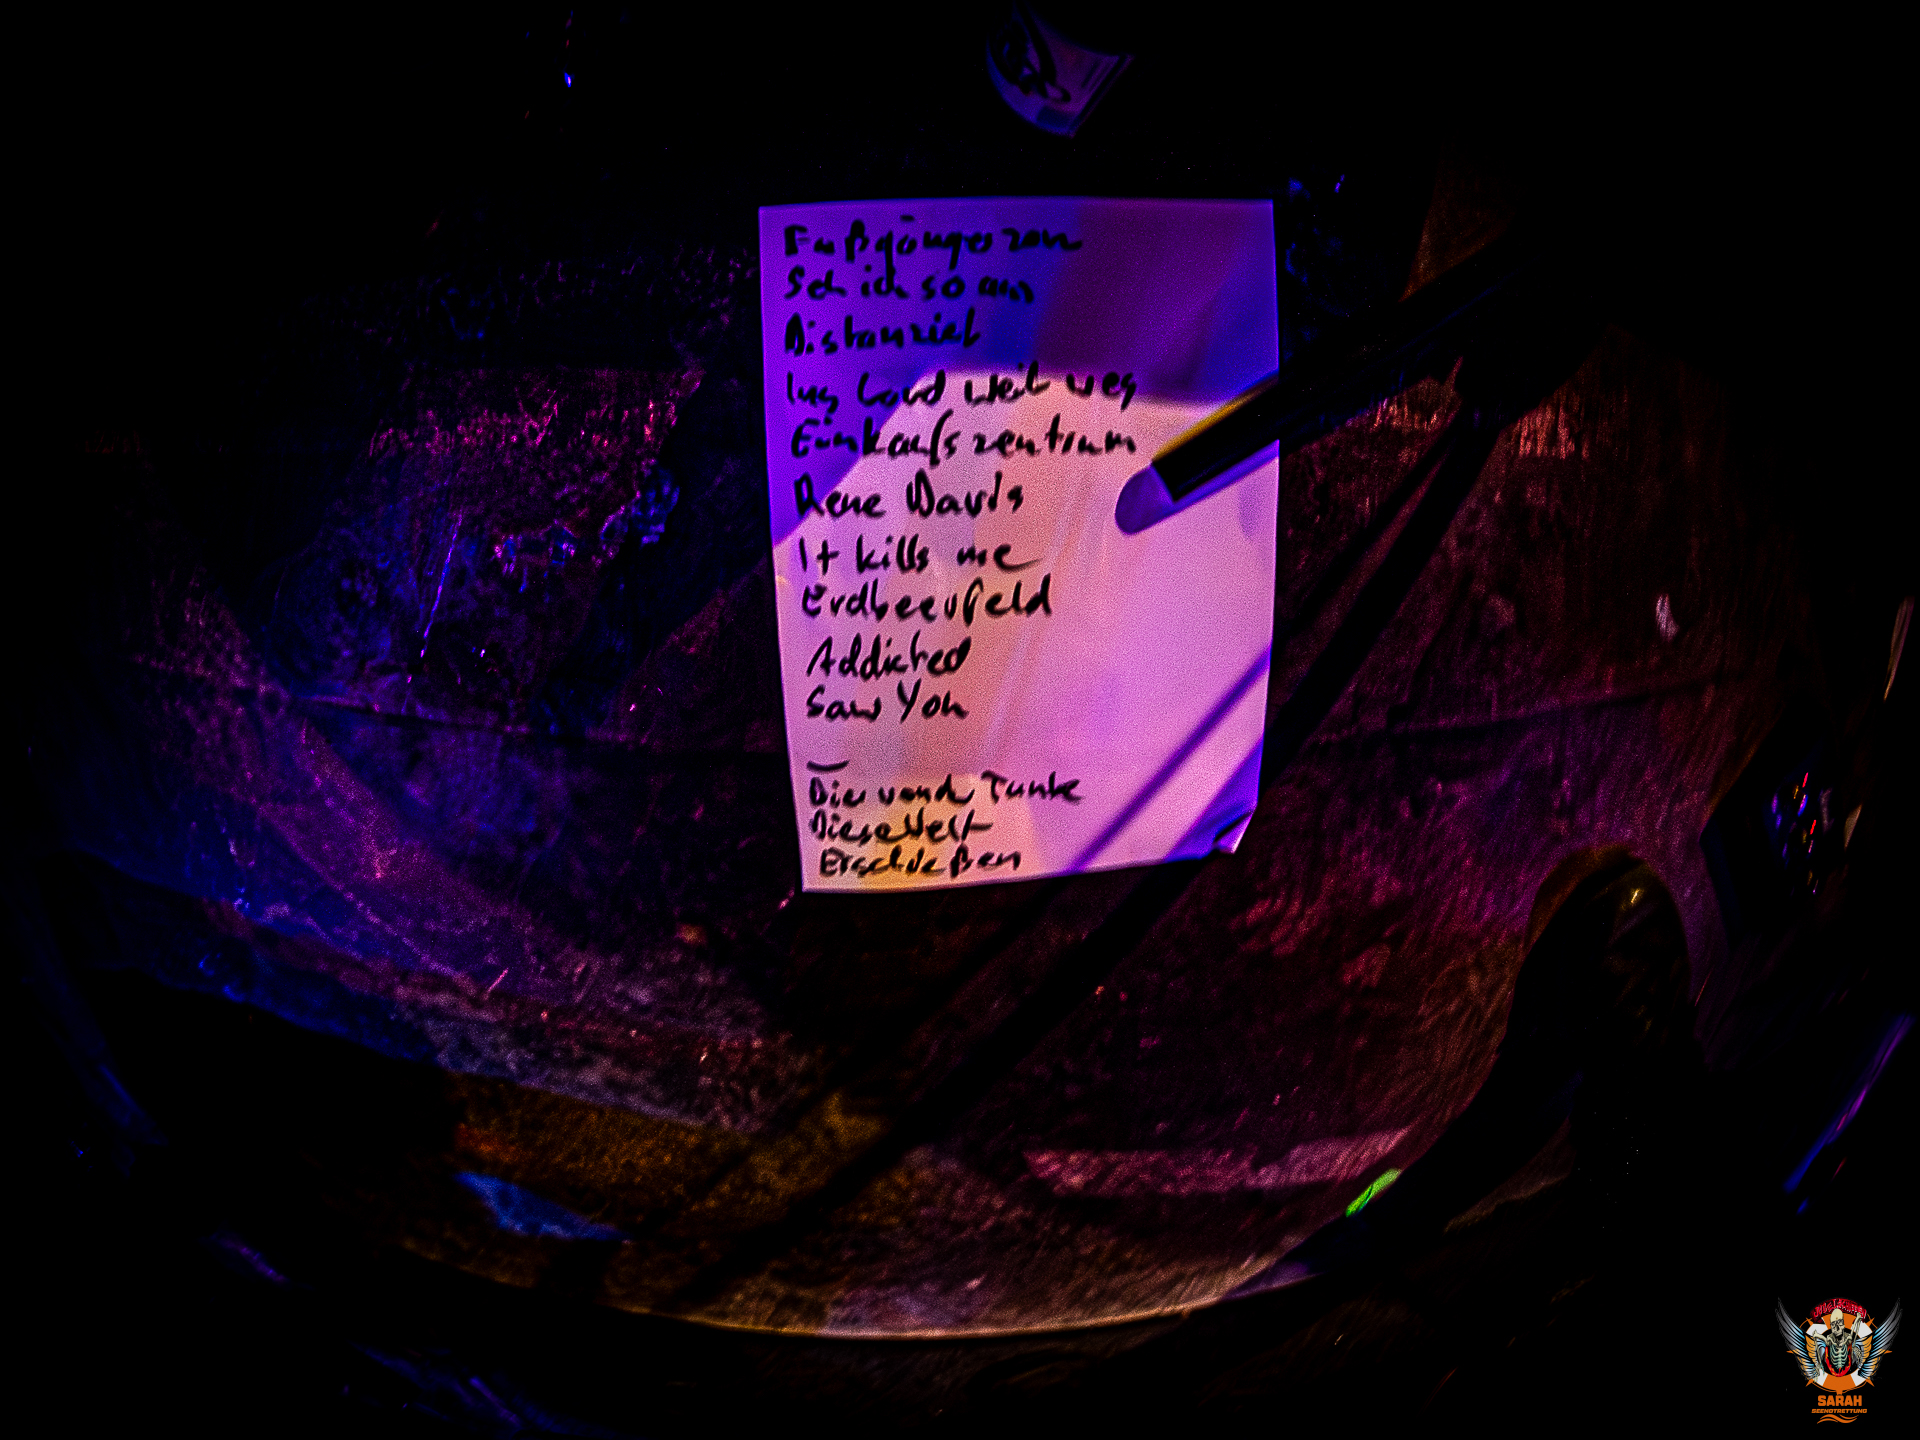 Fußgängerzon
Seh ich so aus
Distanziert
Ins Land weit weg
Einkaufszentrum
Rene Davis
It kills me
Erdbeerfeld
Addicted
Saw You
Bier und Tunke
Diese Welt
Erschießen
SARAH
SEENOTRETTUNG